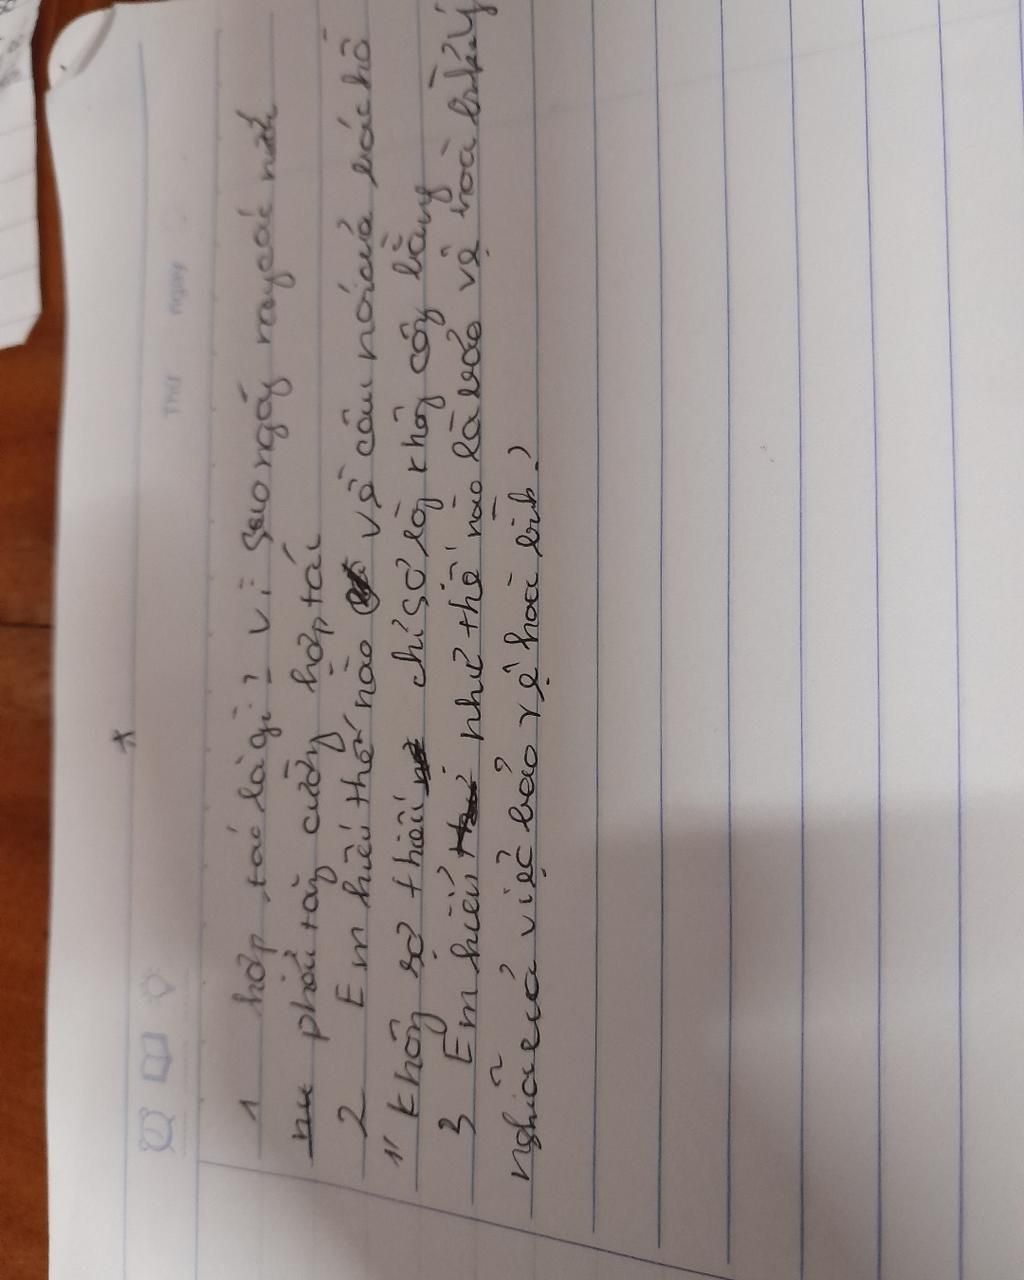 Thứ
Ngày
1 hợp tác là gì? vì sao ngày nay các nước
phải tăng cường hợp tác
2 Em hiểu thế nào về câu nói của bác hồ
"không sợ thiếu chỉ sợ lòng không công bằng
3 Em hiểu như thế nào là bảo vệ hoà bình ý
nghĩa của việc bảo vệ hoà bình?